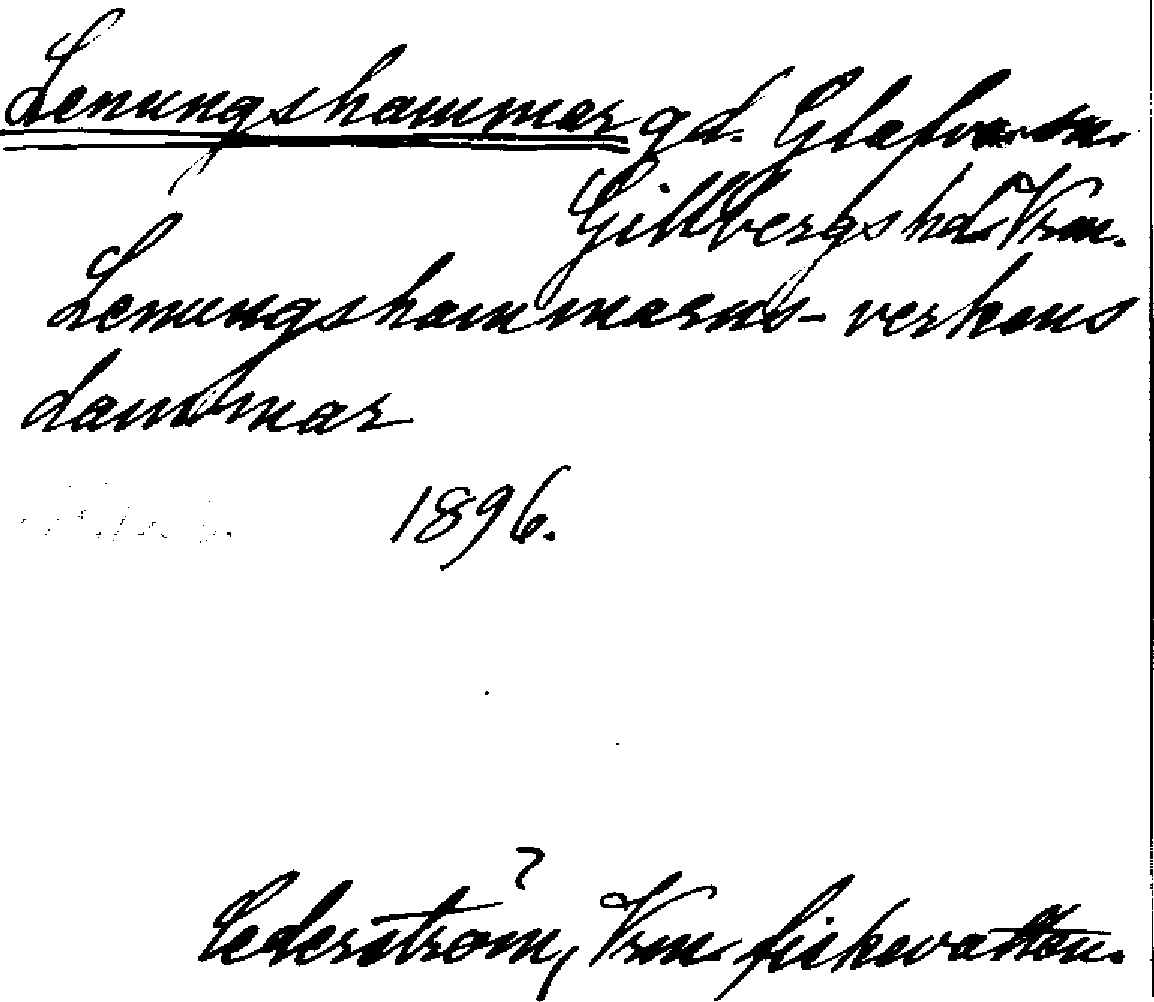 Lenungshammar gd. Glafva sn.
Gillbergs hd. Vrm.
Lenungshammarns-verkens
dammar
1896.
Cederström, Vrm. fiskevatten.